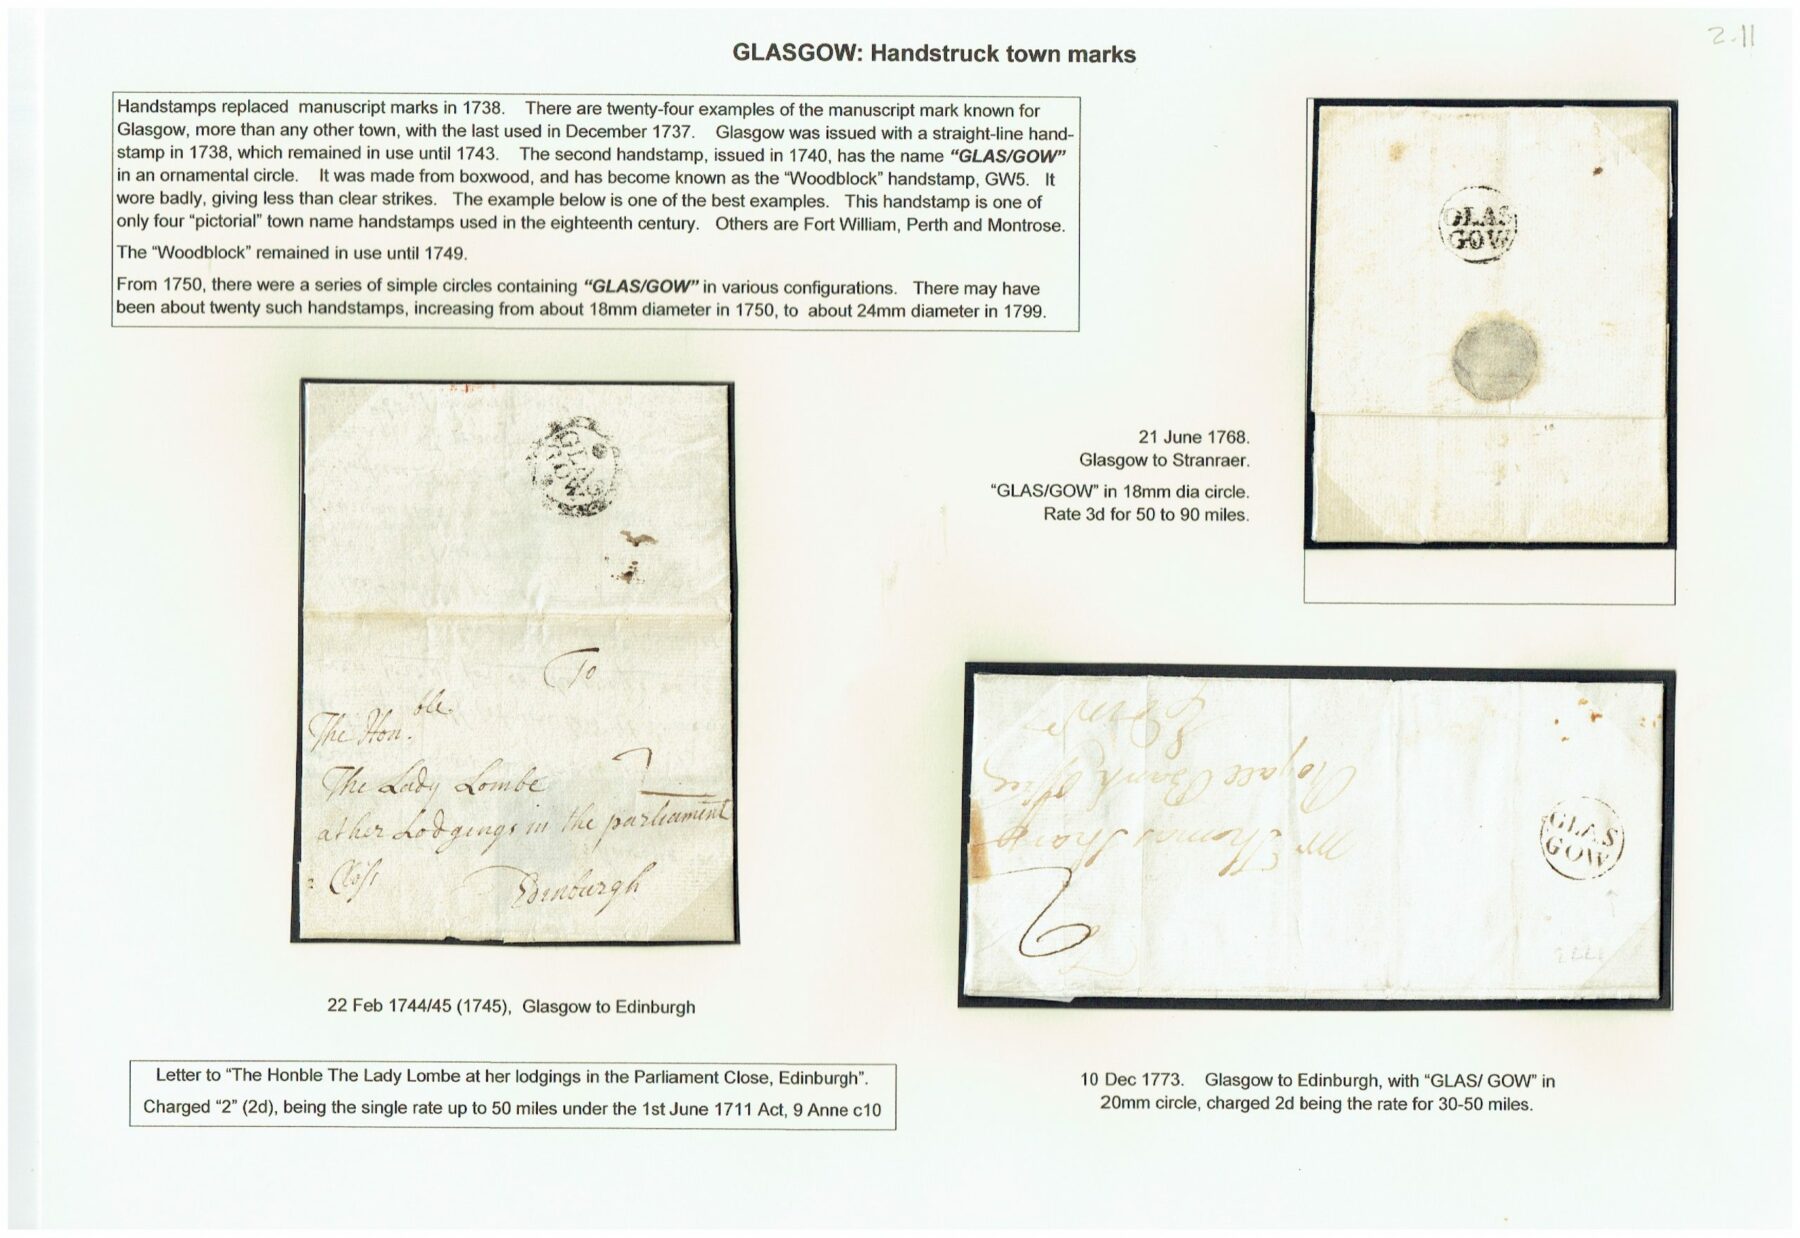 2-11
GLASGOW: Handstruck town marks
Handstamps replaced manuscript marks in 1738. There are twenty-four examples of the manuscript mark known for
Glasgow, more than any other town, with the last used in December 1737. Glasgow was issued with a straight-line hand-
stamp in 1738, which remained in use until 1743. The second handstamp, issued in 1740, has the name “GLAS/GOW”
in an ornamental circle. It was made from boxwood, and has become known as the “Woodblock” handstamp, GW5. It
wore badly, giving less than clear strikes. The example below is one of the best examples. This handstamp is one of
only four “pictorial” town name handstamps used in the eighteenth century. Others are Fort William, Perth and Montrose.
The “Woodblock” remained in use until 1749.
From 1750, there were a series of simple circles containing “GLAS/GOW” in various configurations. There may have
been about twenty such handstamps, increasing from about 18mm diameter in 1750, to about 24mm diameter in 1799.
GLAS
GOW
21 June 1768.
Glasgow to Stranraer.
“GLAS/GOW” in 18mm dia circle.
Rate 3d for 50 to 90 miles.
GLAS
GOW
To
The Honble
The Lady Lombe
at her Lodgings in the parliament
Closs
Edinburgh
22 Feb 1744/45 (1745), Glasgow to Edinburgh
Letter to “The Honble The Lady Lombe at her lodgings in the Parliament Close, Edinburgh”.
Charged “2” (2d), being the single rate up to 50 miles under the 1st June 1711 Act, 9 Anne c10
Mr Thomas Sharp
Royall Bank office
Edinr
2
GLAS
GOW
10 Dec 1773. Glasgow to Edinburgh, with “GLAS/ GOW” in
20mm circle, charged 2d being the rate for 30-50 miles.